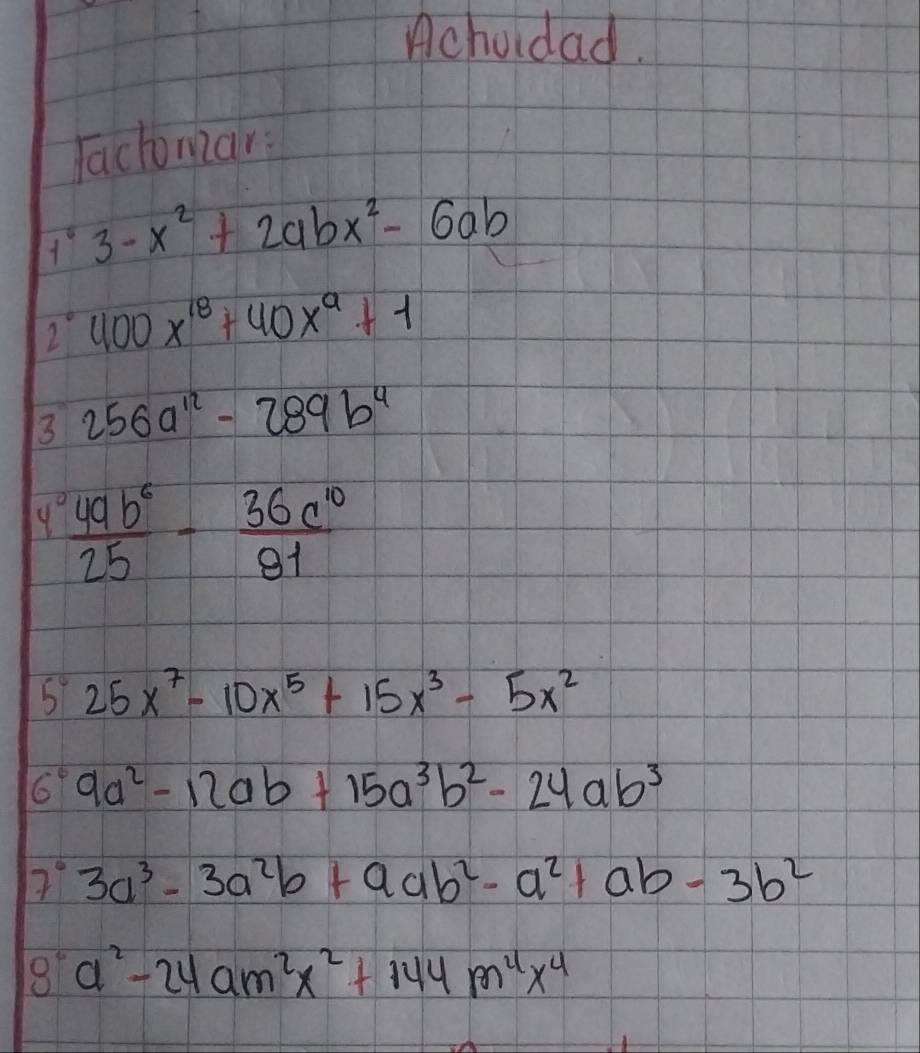 Actividad.
Factorizar:
1° 3 - x² + 2abx² - 6ab
2° 400x¹⁸ + 40x⁹ + 1
3 256a¹² - 289b⁴
4° 49b⁶/25 - 36c¹⁰/81
5° 25x⁷ - 10x⁵ + 15x³ - 5x²
6° 9a² - 12ab + 15a³b² - 24ab³
7° 3a³ - 3a²b + 9ab² - a² + ab - 3b²
8° a² - 24am²x² + 144m⁴x⁴